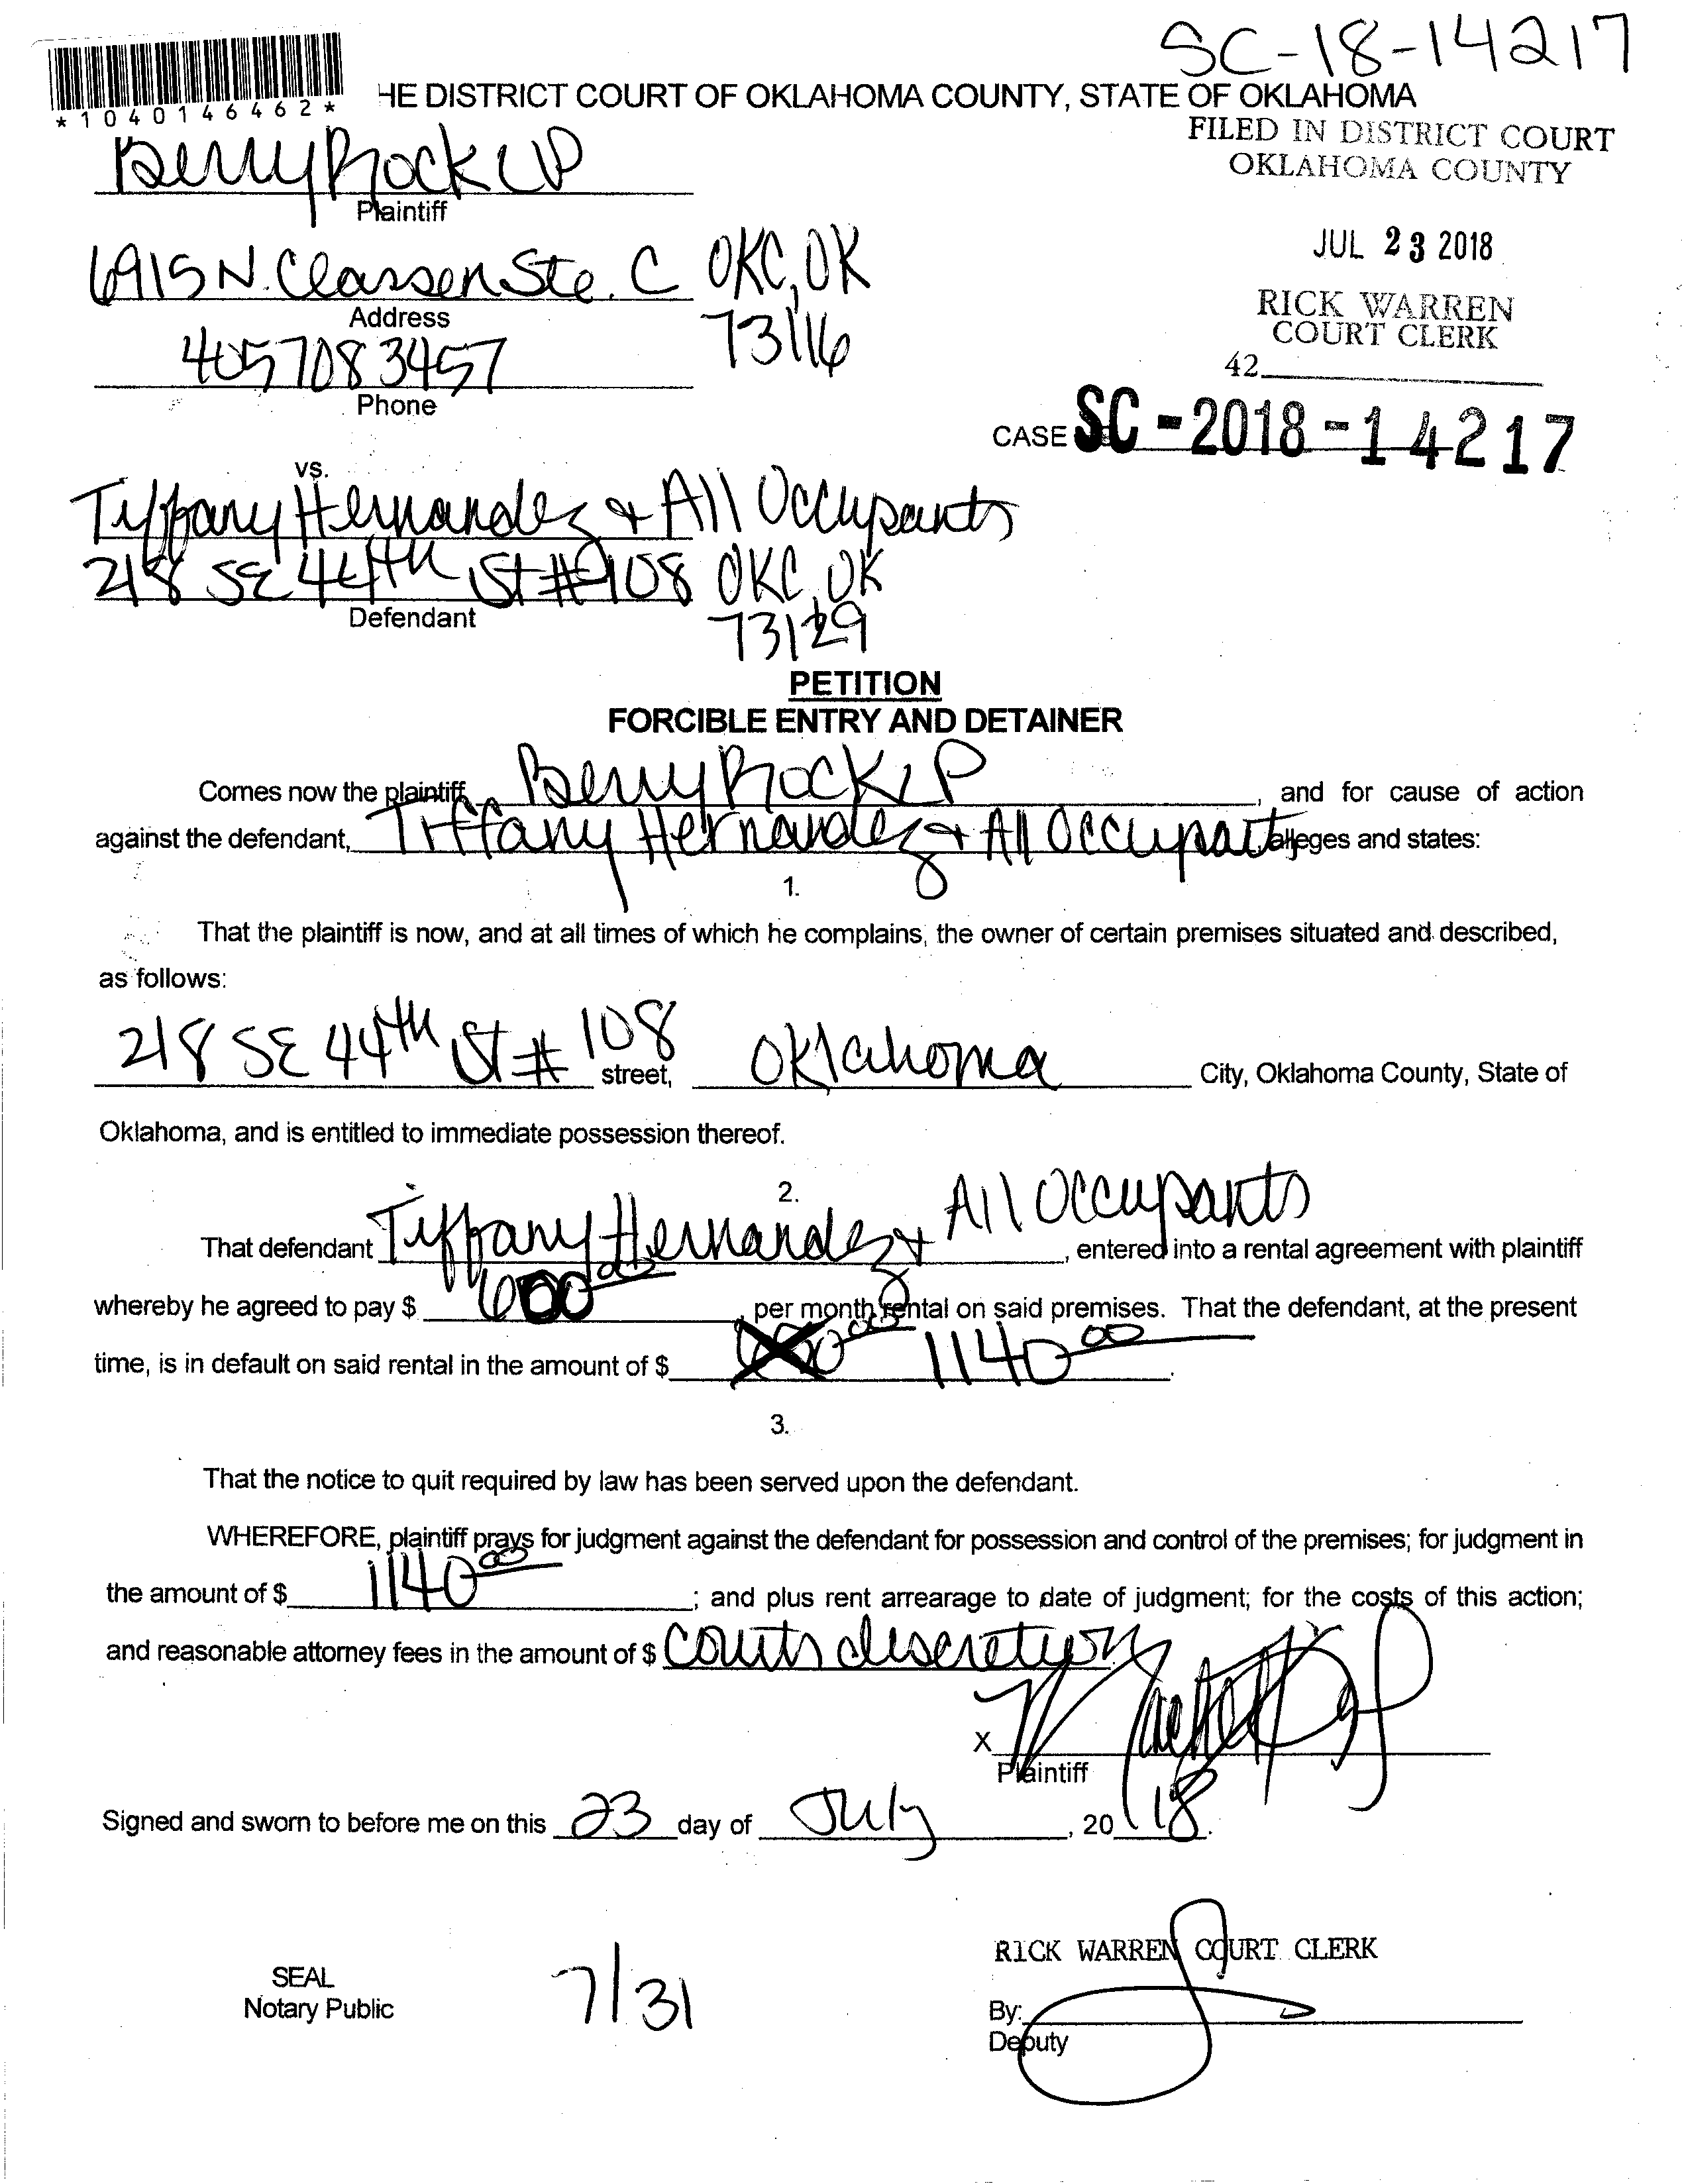 SC-18-14217
*1040146462*
HE DISTRICT COURT OF OKLAHOMA COUNTY, STATE OF OKLAHOMA
FILED IN DISTRICT COURT
OKLAHOMA COUNTY
Berry Rock LP
Plaintiff
JUL 23 2018
6915 N. Classen Ste. C OKC, OK
Address
73116
RICK WARREN
COURT CLERK
4057083457
Phone
42
CASE SC-2018-14217
vs.
Tiffany Hernandez & All Occupants
218 SE 44th St # 108 OKC, OK
Defendant
73129
PETITION
FORCIBLE ENTRY AND DETAINER
Comes now the plaintiff Berry Rock LP, and for cause of action
against the defendant, Tiffany Hernandez & All Occupant alleges and states:
1.
That the plaintiff is now, and at all times of which he complains, the owner of certain premises situated and described,
as follows:
218 SE 44th St # 108 street, Oklahoma City, Oklahoma County, State of
Oklahoma, and is entitled to immediate possession thereof.
2.
That defendant Tiffany Hernandez & All Occupants, entered into a rental agreement with plaintiff
whereby he agreed to pay $ 600 00, per month rental on said premises. That the defendant, at the present
time, is in default on said rental in the amount of $ 1140 00.
3.
That the notice to quit required by law has been served upon the defendant.
WHEREFORE, plaintiff prays for judgment against the defendant for possession and control of the premises; for judgment in
the amount of $ 1140 00; and plus rent arrearage to date of judgment; for the costs of this action;
and reasonable attorney fees in the amount of $ courts discretion
X
Plaintiff
Signed and sworn to before me on this 23 day of July, 2018.
RICK WARREN COURT CLERK
SEAL
Notary Public
7/31
By:
Deputy